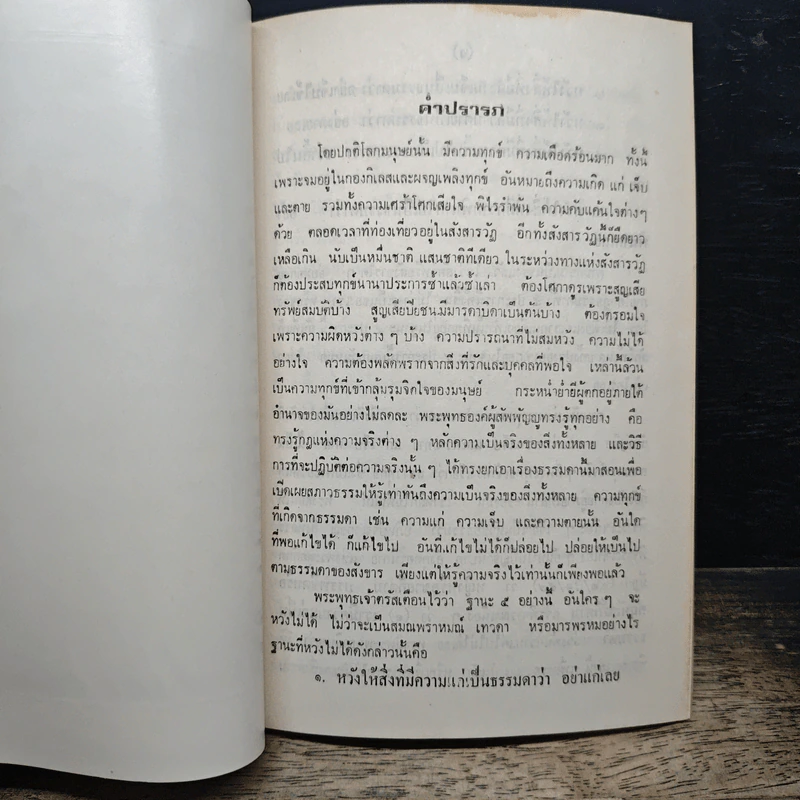 คำปรารภ
โดยปกติโลกมนุษย์นั้น มีความทุกข์ ความเดือดร้อนมาก ทั้งนี้
เพราะจมอยู่ในกองกิเลสและผจญเพลิงทุกข์ อันหมายถึงความเกิด แก่ เจ็บ
และตาย รวมทั้งความเศร้าโศกเสียใจ พิไรรำพัน ความคับแค้นใจต่างๆ
ด้วย ตลอดเวลาที่ท่องเที่ยวอยู่ในสังสารวัฏ อีกทั้งสังสารวัฏนี้ก็ยืดยาว
เหลือเกิน นับเป็นหมื่นชาติ แสนชาติทีเดียว ในระหว่างทางแห่งสังสารวัฏ
ก็ต้องประสบทุกข์นานาประการซ้ำแล้วซ้ำเล่า ต้องโศกาดูรเพราะสูญเสีย
ทรัพย์สมบัติบ้าง สูญเสียปิยชนมีมารดาบิดาเป็นต้นบ้าง ต้องตรอมใจ
เพราะความผิดหวังต่าง ๆ บ้าง ความปรารถนาที่ไม่สมหวัง ความไม่ได้
อย่างใจ ความต้องพลัดพรากจากสิ่งที่รักและบุคคลที่พอใจ เหล่านี้ล้วน
เป็นความทุกข์ที่เข้ากลุ้มรุมจิตใจของมนุษย์ กระหน่ำย่ำยีผู้ตกอยู่ภายใต้
อำนาจของมันอย่างไม่ลดละ พระพุทธองค์ผู้สัพพัญญูทรงรู้ทุกอย่าง คือ
ทรงรู้กฎแห่งความจริงต่าง ๆ หลักความเป็นจริงของสิ่งทั้งหลาย และวิธี
การที่จะปฏิบัติต่อความจริงนั้น ๆ ได้ทรงยกเอาเรื่องธรรมดานี้มาสอนเพื่อ
เปิดเผยสภาวธรรมให้รู้เท่าทันถึงความเป็นจริงของสิ่งทั้งหลาย ความทุกข์
ที่เกิดจากธรรมดา เช่น ความแก่ ความเจ็บ และความตายนั้น อันใด
ที่พอแก้ไขได้ ก็แก้ไขไป อันที่แก้ไขไม่ได้ก็ปล่อยไป ปล่อยให้เป็นไป
ตามธรรมดาของสังขาร เพียงแต่ให้รู้ความจริงไว้เท่านั้นก็เพียงพอแล้ว
พระพุทธเจ้าตรัสเตือนไว้ว่า ฐานะ ๕ อย่างนี้ อันใคร ๆ จะ
หวังไม่ได้ ไม่ว่าจะเป็นสมณพราหมณ์ เทวดา หรือมารพรหมอย่างไร
ฐานะที่หวังไม่ได้ดังกล่าวนั้นคือ
๑. หวังให้สิ่งที่มีความแก่เป็นธรรมดาว่า อย่าแก่เลย